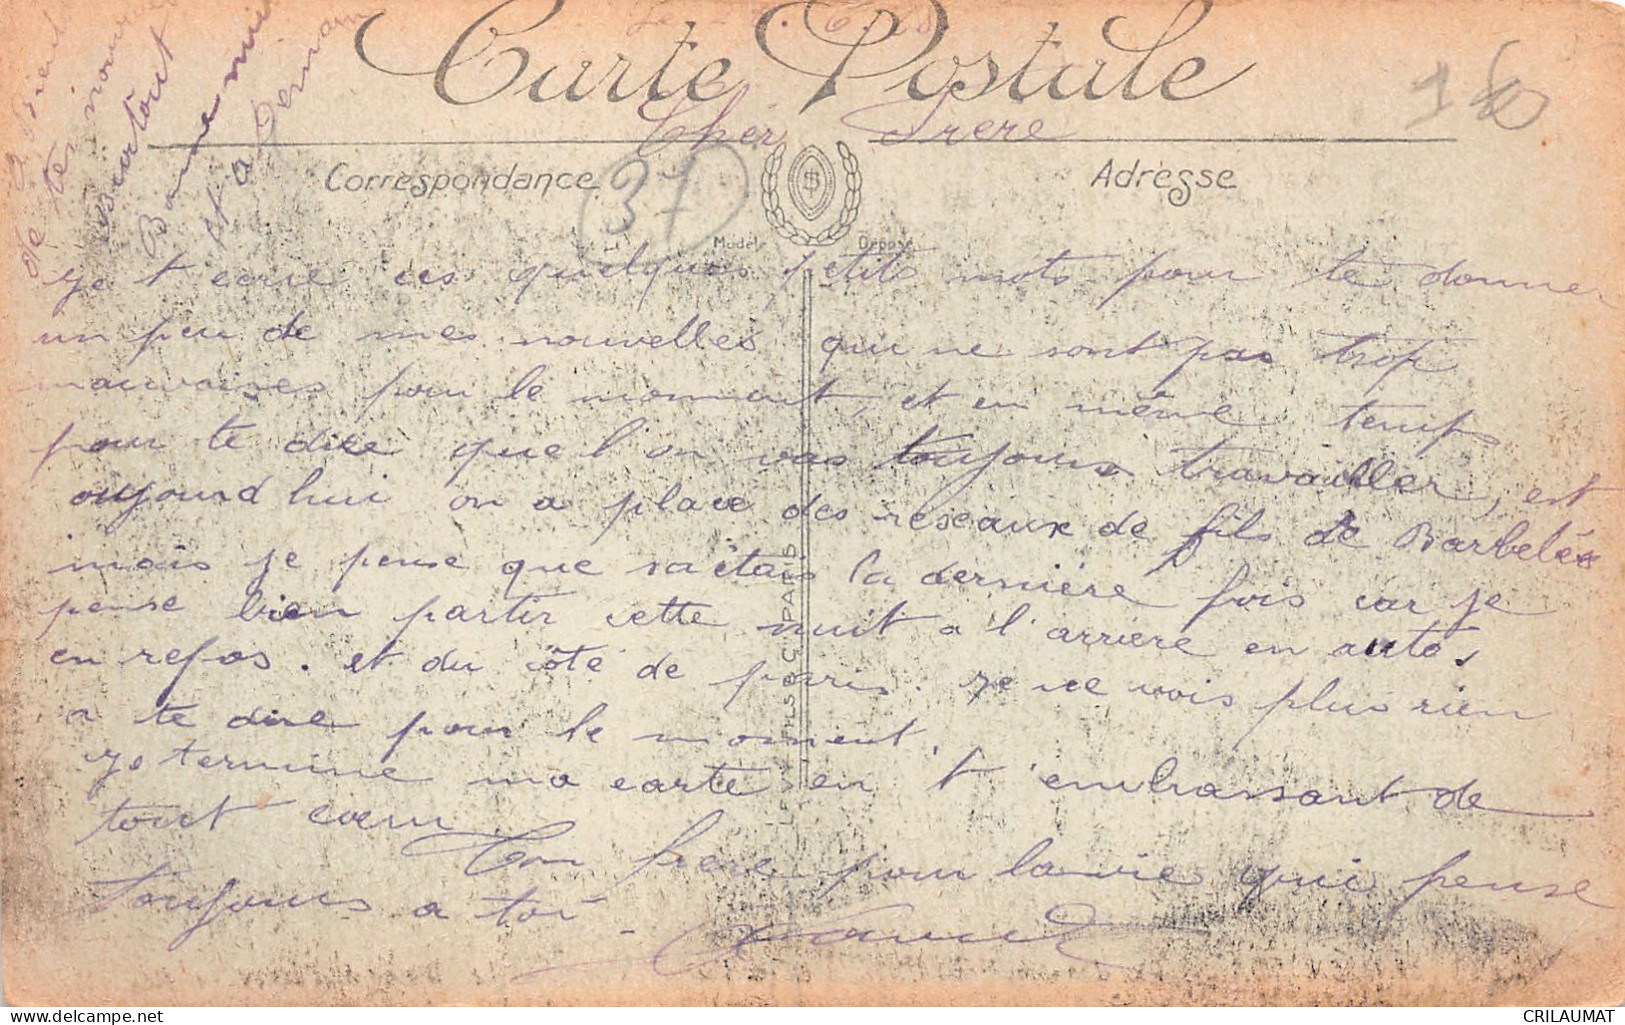 Carte Postale
Cher Frere
Correspondance
Adresse
37
Modèle Déposé
Je t'ecrie ces quelques petits mots pour te donner
un peu de mes nouvelles qui ne sont pas trop
mauvaises pour le moment, et en même temps
pour te dire que l'on vas toujours travailler, est
oujourd hui on a place des reseaux de fils de Barbelés
mais je pense que sa étais la dernière fois car je
pense bien partir cette nuit a l'arrière en autos
en repos. et du côté de paris. Je ne vois plus rien
a te dire pour le moment.
Je termine ma carte en t'embrassant de
tout cœur.
Ton frere pour la vie qui pense
toujours a toi
de tes nouvelles
surtout
Bonne nuit
et a demain
LEVY FILS & Cie PARIS
CRILAUMAT